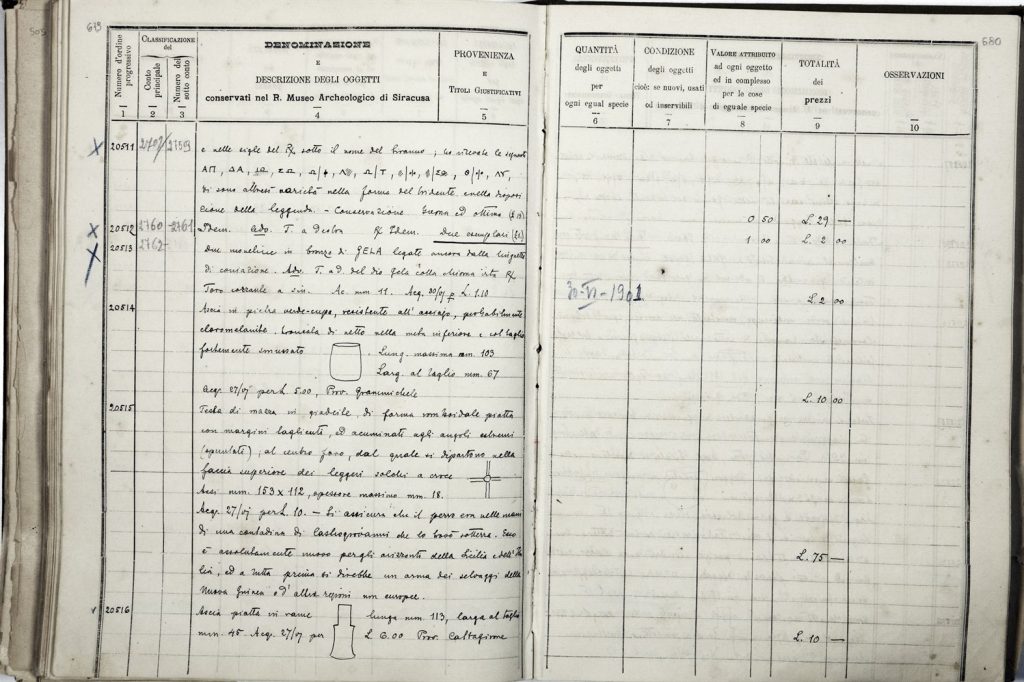 679
680
Numero d'ordine progressivo
CLASSIFICAZIONE del
Conto principale
Numero del sotto conto
DENOMINAZIONE
E
DESCRIZIONE DEGLI OGGETTI
conservati nel R. Museo Archeologico di Siracusa
PROVENIENZA
E
TITOLI GIUSTIFICATIVI
QUANTITÀ
degli oggetti
per
ogni egual specie
CONDIZIONE
degli oggetti
cioè: se nuovi, usati
od inservibili
VALORE ATTRIBUITO
ad ogni oggetto
ed in complesso
per le cose
di eguale specie
TOTALITÀ
dei
prezzi
OSSERVAZIONI
1 2 3 4 5 6 7 8 9 10
20511 2759 e nelle sigle del sotto il nome del
di sono altresì varietà nella forma del tridente e nella disposi
zione della leggenda. - Conservazione buona ed ottima 0 50 L. 29 —
20512 2760 -2761 Idem. Adv. T. a destra Idem. Due esemplari 1 00 L. 2 00
20513 2762- Due monetine in bronzo di GELA legate ancora dalla linguetta
di coniazione. Adv. T. a d. del dio Gela colla chioma irta
Toro corrente a sin. Ae. mm 11. Acq. 30/VI p L. 1.10 30-VI-1901 L. 2 00
20514 Ascia in pietra verde-cupa, resistente all'acciajo, probabilmente
cloromelanite. Troncata di netto nella metà inferiore e col taglio
fortemente smussato. Lung. massima mm. 103
Larg. al taglio mm. 67
Acq. 27/VI per L. 5.00, Prov. Grammichele L. 10 00
20515 Testa di mazza in giadeite, di forma romboidale piatta
con margini tagliente, ed acuminati agli angoli estremi
(spuntati); al centro foro, dal quale si dipartono nella
faccia superiore dei leggeri solchi a croce
Assi mm. 153 x 112, spessore massimo mm. 18.
Acq. 27/VI per L. 10. - Si assicura che il pezzo era nelle mani
di una contadina di Castrogiovanni che lo trovò sotterra. Esso
è assolutamente nuovo per gli orizzonti della Sicilia e dell'Ita
lia, ed a tutta prima si direbbe un arma dei selvaggi della L. 75 —
Nuova Guinea o d'altre regioni non europee.
20516 Ascia piatta in rame lunga mm. 113, larga al taglio
mm. 45. Acq. 27/VI per L 6.00 Prov. Caltagirone L. 10 —